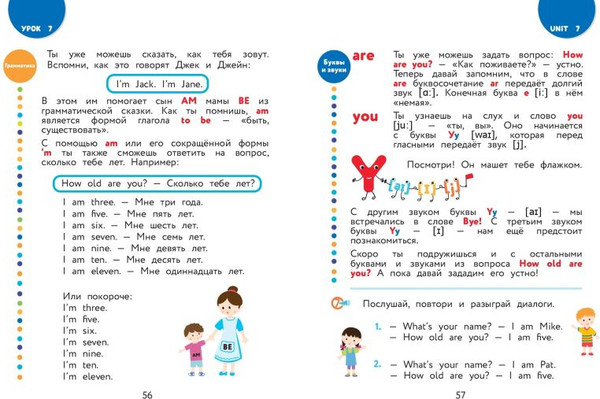 УРОК 7
Грамматика
Ты уже можешь сказать, как тебя зовут.
Вспомни, как это говорят Джек и Джейн:
I'm Jack. I'm Jane.
В этом им помогает сын AM мамы BE из
грамматической сказки. Как ты помнишь, am
является формой глагола to be – «быть,
существовать».
С помощью am или его сокращённой формы
'm ты также сможешь ответить на вопрос,
сколько тебе лет. Например:
How old are you? – Сколько тебе лет?
I am three. – Мне три года.
I am five. – Мне пять лет.
I am six. – Мне шесть лет.
I am seven. – Мне семь лет.
I am nine. – Мне девять лет.
I am ten. – Мне десять лет.
I am eleven. – Мне одиннадцать лет.
Или покороче:
I'm three.
I'm five.
I'm six.
I'm seven.
I'm nine.
I'm ten.
I'm eleven.
AM
BE
56
UNIT 7
Буквы и звуки
are
Ты уже можешь задать вопрос: How
are you? – «Как поживаете?» – устно.
Теперь давай запомним, что в слове
are буквосочетание ar передаёт долгий
звук [ɑː]. Конечная буква e [iː] в нём
«немая».
you
Ты узнаешь на слух и слово you
[juː] – «ты, вы». Оно начинается
с буквы Yy [waɪ], которая перед
гласными передаёт звук [j].
Посмотри! Он машет тебе флажком.
Y [aɪ] [ɪ] [j]
С другим звуком буквы Yy – [aɪ] – мы
встречались в слове Bye! С третьим звуком
буквы Yy – [ɪ] – нам ещё предстоит
познакомиться.
Скоро ты подружишься и с остальными
буквами и звуками из вопроса How old are
you? А пока давай зададим его устно!
Послушай, повтори и разыграй диалоги.
1. – What's your name? – I am Mike.
– How old are you? – I am five.
2. – What's your name? – I am Pat.
– How old are you? – I am five.
57